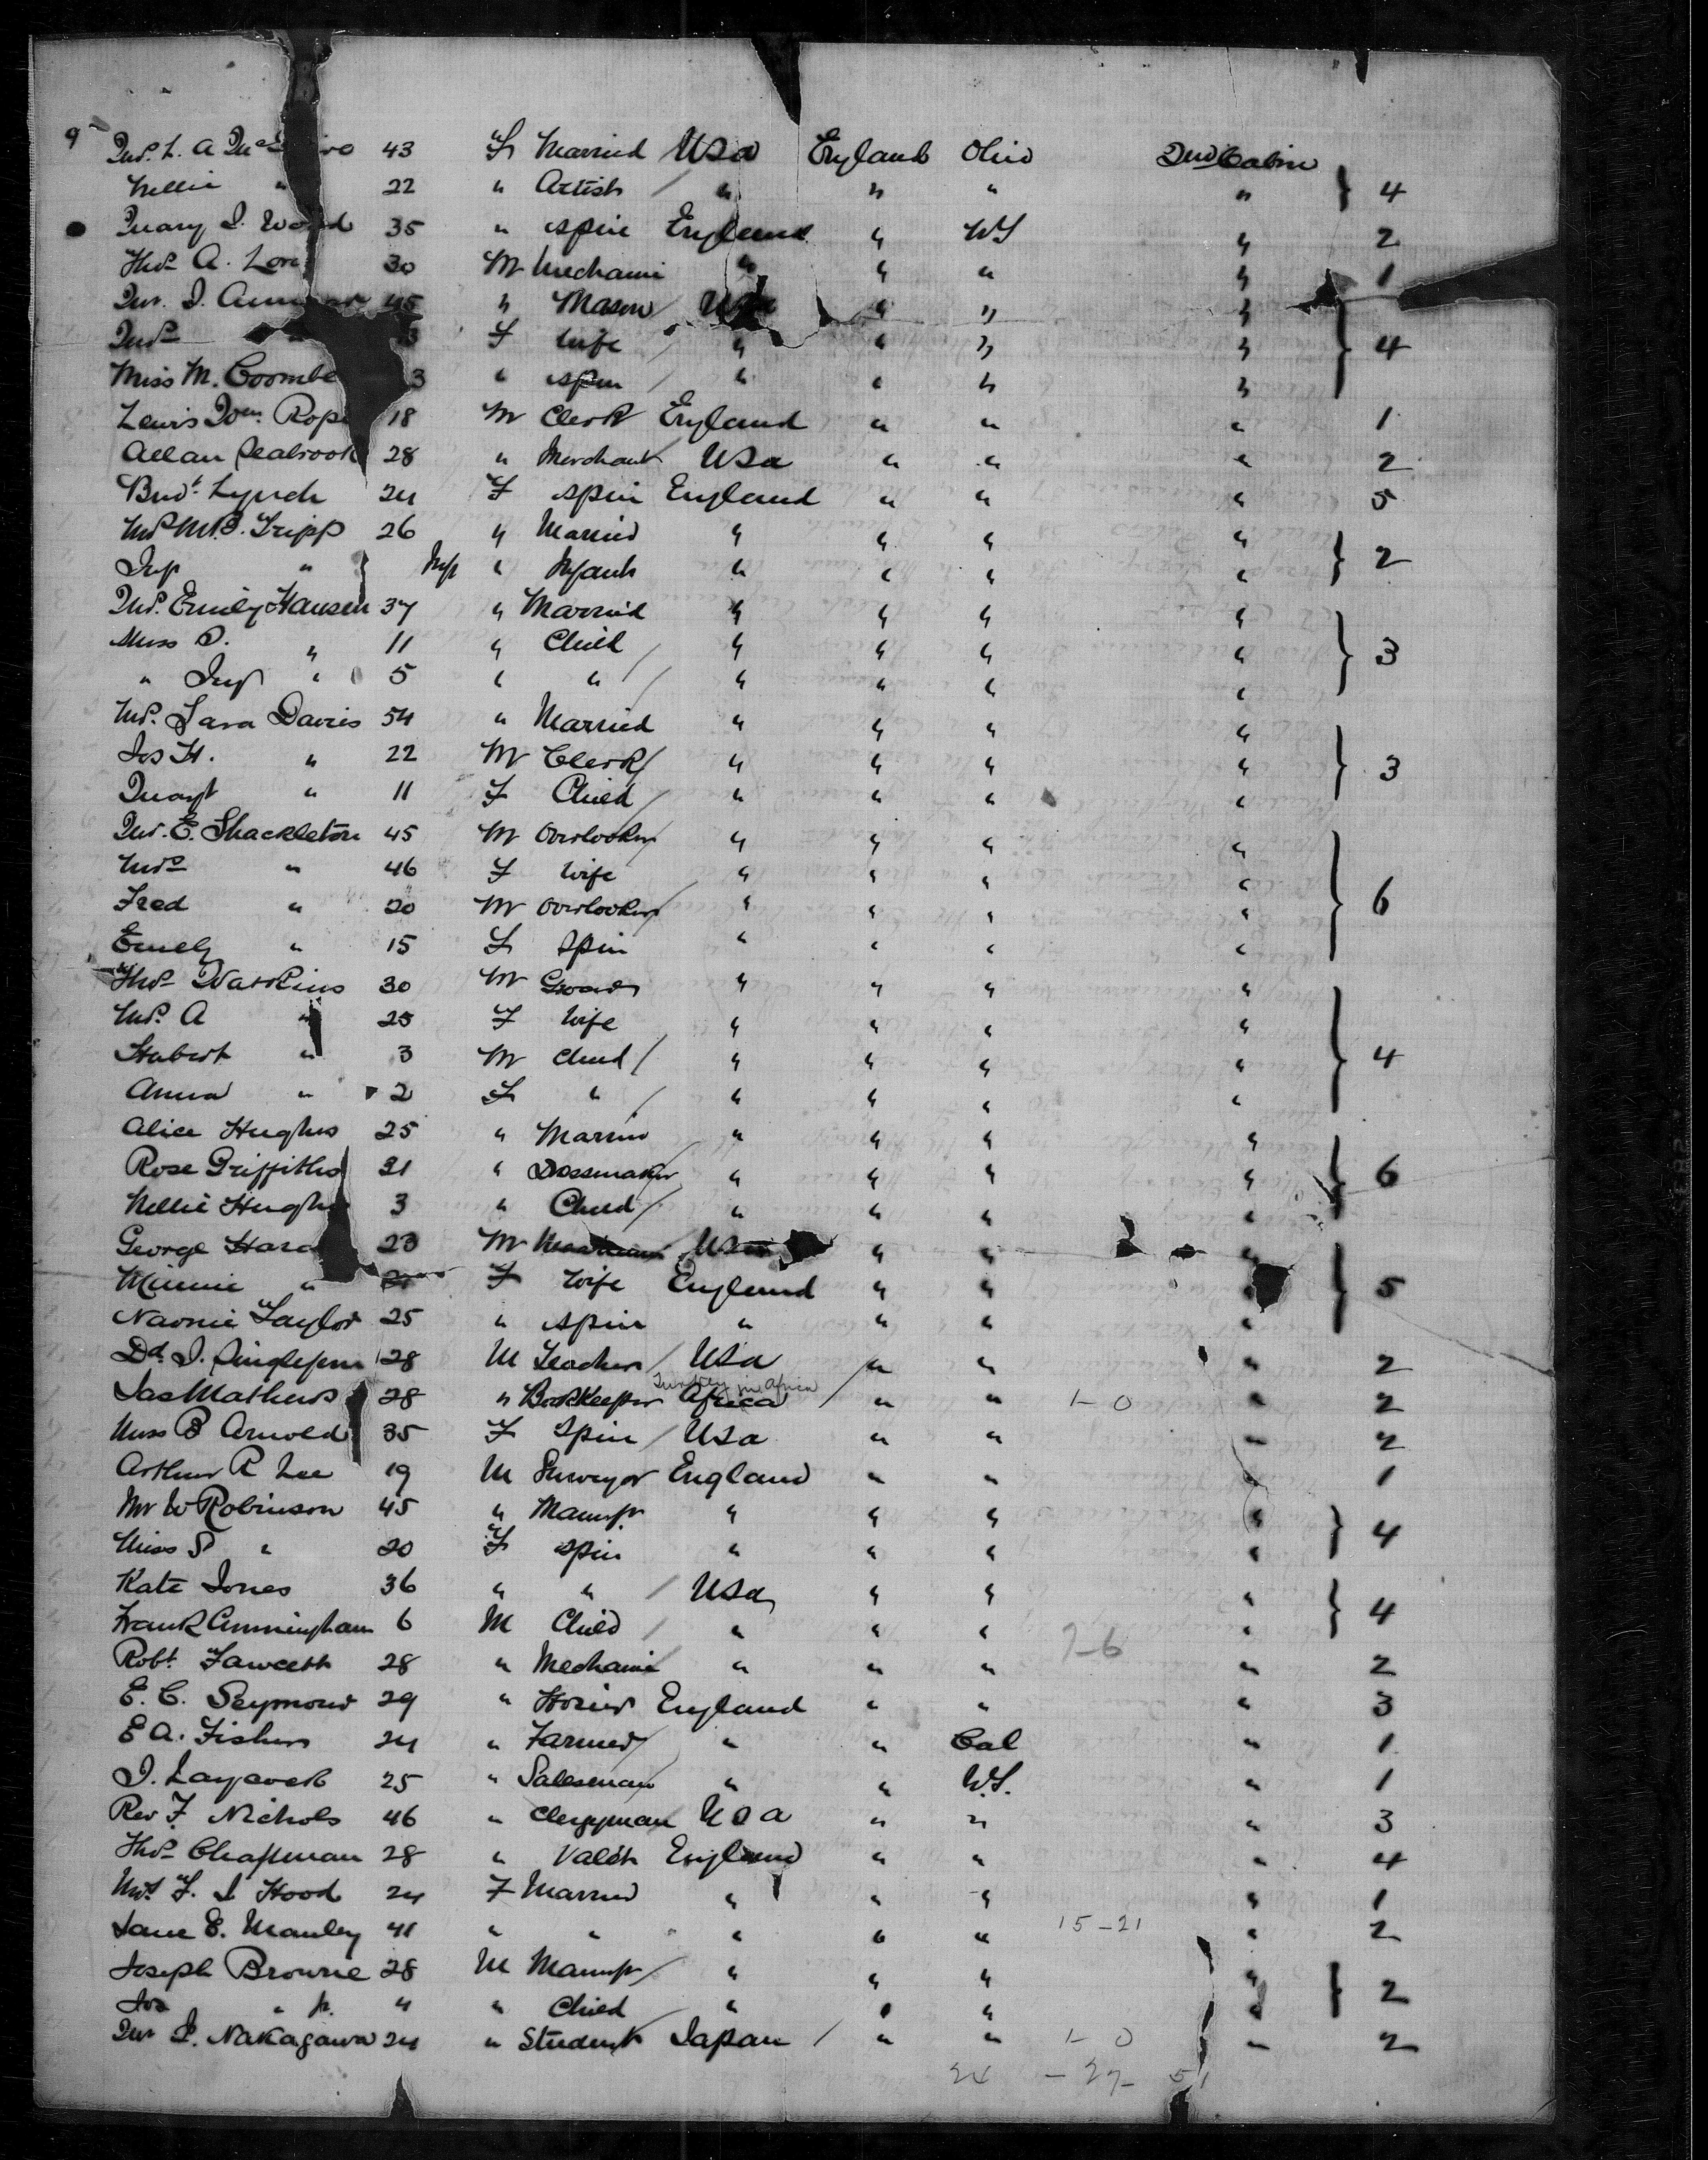 9 Mrs. L. A 43 F Married USA England Ohio 2nd Cabin
Nellie " 22 " Artist / " " " " } 4
Mary J. Wood 35 " Spin England " WS " 2
Thos A. 30 M Mechanic " " " " 1
Mr. J. 45 " Mason / USA " " "
Mrs " F Wife / " " " " } 4
Miss M. Coombe 3 " Spin / " " " "
Lewis Wm. Rope 18 M Clerk England " " " 1
Allan Seabrook 28 " Merchant USA " " " 2
Lynch 24 F Spin England " " " 5
Mrs M.B. Tripp 26 " Married " " " "
Inf " } Inf " Infant " " " " } 2
Mrs. Emily Hansen 37 " Married " " " "
Miss D. " 11 " Child / " " " " } 3
" Inf " 5 " " / " " " "
Mrs. Sara Davies 54 " Married " " " "
Jos H. " 22 M Clerk / " " " " } 3
Margt " 11 F Child / " " " "
Mr. E. Shackleton 45 M Overlooker / " " " "
Mrs " 46 F Wife " " " "
Fred " 20 M Overlooker / " " " " } 6
Emely " 15 F Spin " " " "
Thos Watkins 30 M Grocer " " " "
Mrs. A " 25 F Wife " " " "
Hubert " 3 M Child / " " " " } 4
Anna " 2 F " / " " " "
Alice Hughes 25 " Married " " " "
Rose Griffiths 21 " Dressmaker " " " " } 6
Nellie Hughes 3 " Child / " " " "
George 23 M USA " " "
Minnie " F Wife England " " " } 5
Naomi Taylor 25 " Spin " " " "
Dd. J. 28 M Teacher / USA " " " 2
Turkey in Africa
Jas Mathews 28 " Bookkeeper Africa / " " 1-0 " 2
Miss B Arnold 35 F Spin / USA " " " 2
Arthur R Lee 19 M Surveyor England " " " 1
Mr W Robinson 45 " Manufr " " " "
Miss S " 20 F Spin " " " " } 4
Kate Jones 36 " " / USA " " "
Frank Cunningham 6 M Child / " " " " } 4
7-6
Robt. Fawcett 28 " Mechanic " " " " 2
E. C. Seymour 29 " Hosier England " " " 3
E A. Fisher 24 " Farmer / " " Cal " 1
J. Laycock 25 " Salesman / " " W.S. " 1
Rev F. Nichols 46 " Clergyman USA " " " 3
Thos Chapman 28 " Valet England " " " 4
Mrs F. J Hood 24 F Married " " " " 1
Jane E. Manley 41 " " " " " 15-21 " 2
Joseph Browne 28 M Manufr / " " " "
Jos " Jr. 4 " Child " " " " } 2
Mr I. Nakagawa 24 " Student Japan / " " 1-0 " 2
24 - 27 - 51